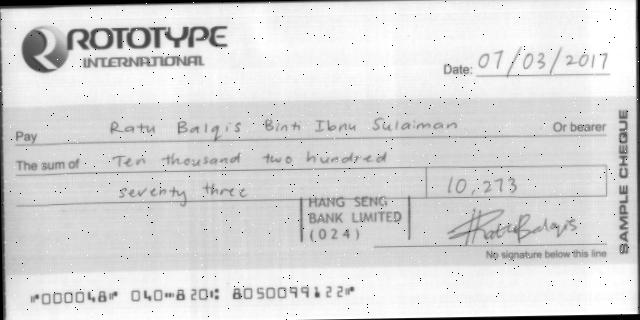 ROTOTYPE
INTERNATIONAL
Date: 07/03/2017
Pay Ratu Balqis Binti Ibnu Sulaiman Or bearer
The sum of Ten thousand two hundred
seventy three 10,273
HANG SENG
BANK LIMITED
(024)
Ratu Balqis
No signature below this line
SAMPLE CHEQUE
⑈000048⑈ 040⑉820⑆ 8050099122⑈